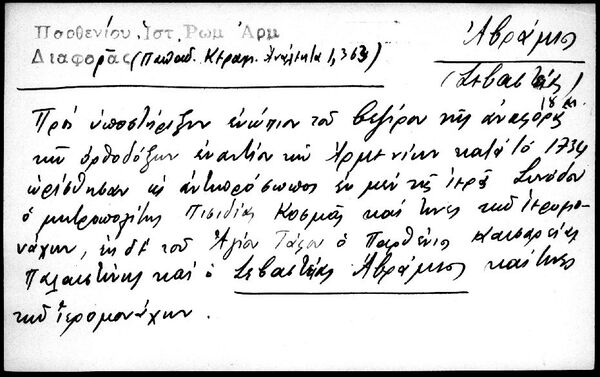 Παρθενίου Ἱστ. Ρωμ Ἀρμ
Διαφορᾶς (Παπαδ. Κεραμ. Ἀνάλεκτα 1, 363)
Ἀβράμιος
(Σεβαστείας)
18 αι.
Πρὸς ὑποστήριξιν ἐνώπιον τοῦ Βεζίρου τῆς ἀναφορᾶς
τῶν ὀρθοδόξων ἐναντίον τῶν Ἀρμενίων κατὰ τὸ 1734
ὡρίσθησαν ὡς ἀντιπρόσωποι ἐκ μὲν τῆς ἱερᾶς Συνόδου
ὁ μητροπολίτης Πισιδίας Κοσμᾶς καὶ τινες τῶν ἱερομο-
νάχων, ἐκ δὲ τοῦ Ἁγίου Τάφου ὁ Παρθένιος Καισαρείας
Παλαιστίνης καὶ ὁ Σεβαστείας Ἀβράμιος καὶ τινες
τῶν ἱερομονάχων.